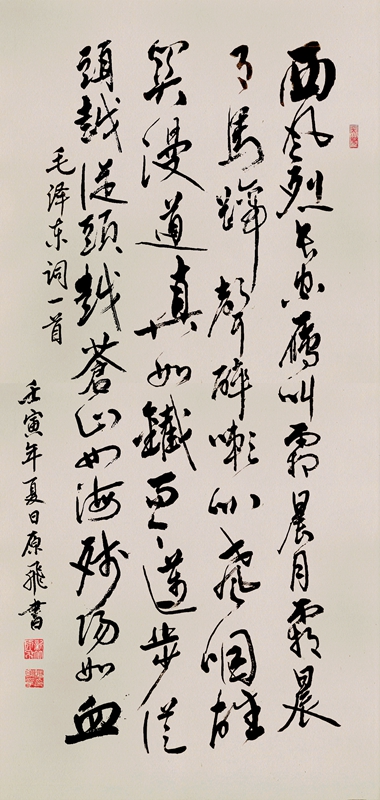 西风烈长空雁叫霜晨月霜晨
月馬蹄聲碎喇叭声咽雄
関漫道真如鐵而今邁步從
頭越從頭越蒼山如海残阳如血
毛泽东词一首
壬寅年夏日原飛書